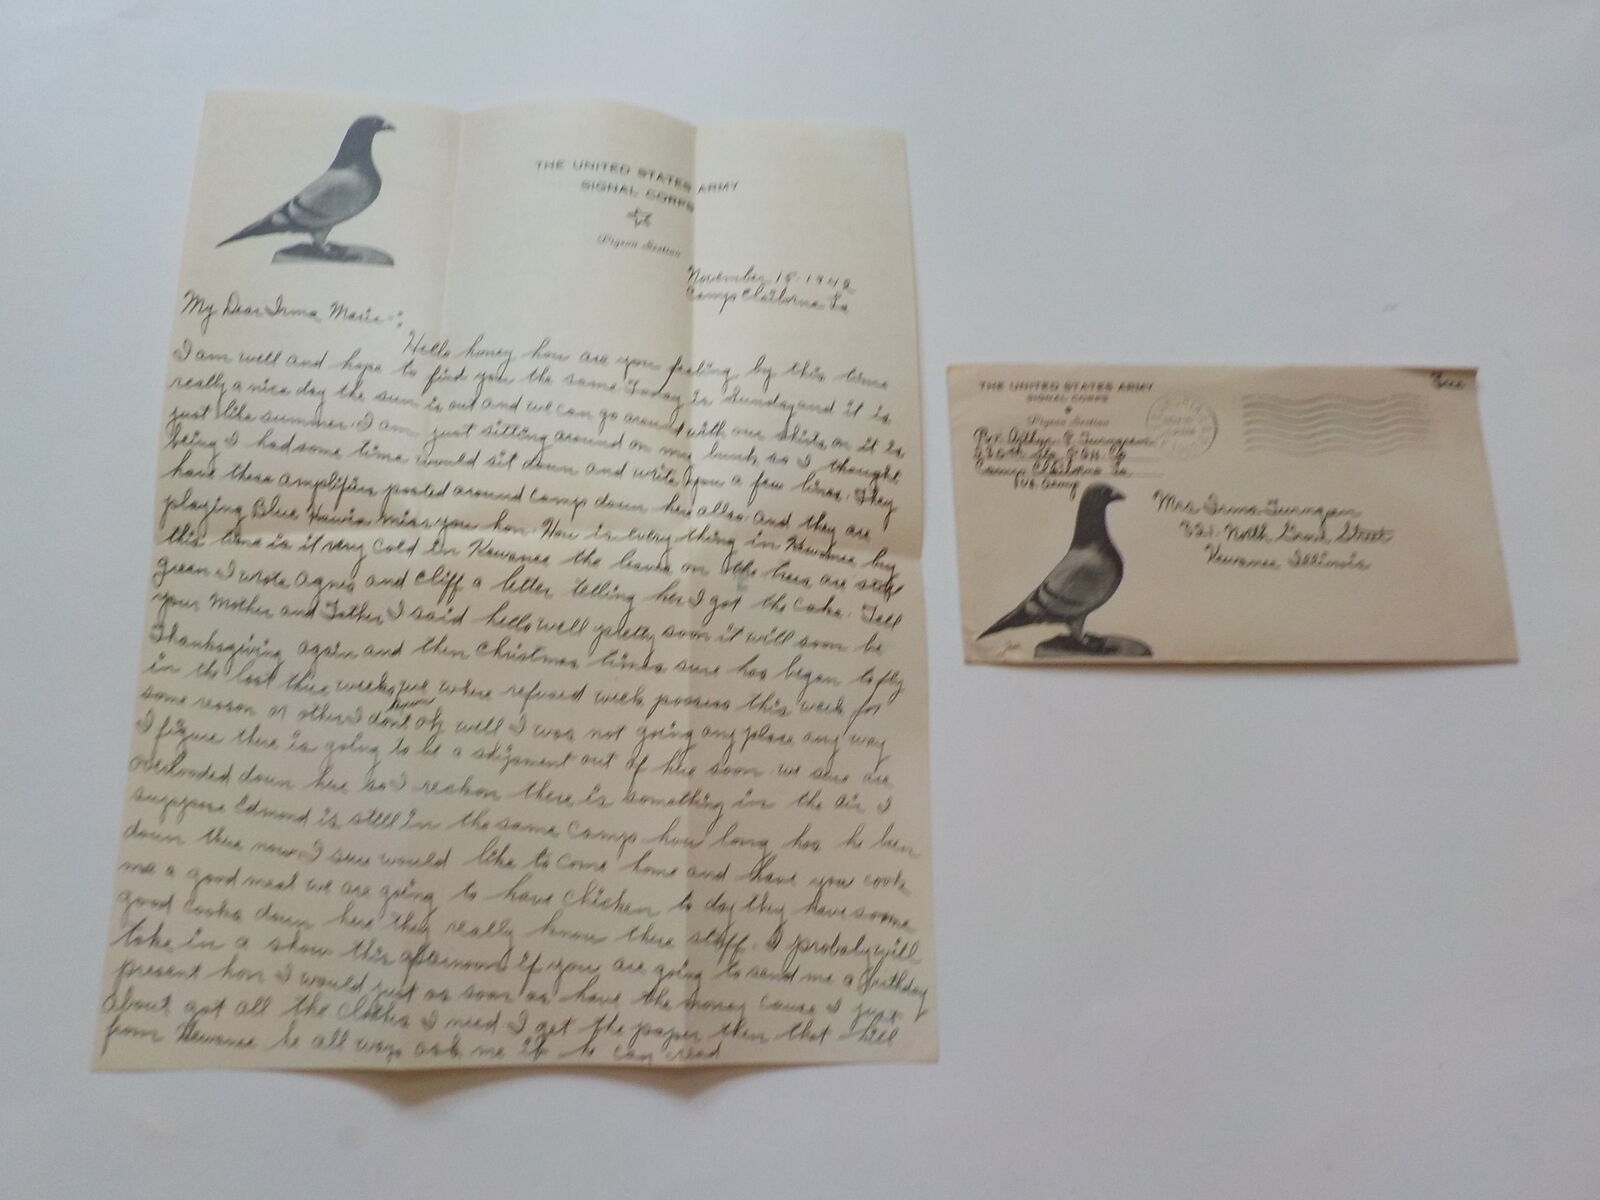 THE UNITED STATES ARMY
SIGNAL CORPS
Pigeon Section
November 15 1942
Camp Claiborne La
My Dear Irma Marie -:
Hello honey how are you feeling by this time
I am well and hope to find you the same Today is Sunday and it is
really a nice day the sun is out and we can go around with our shirts on it is
just like summer. I am just sitting around on my bunk so I thought
being I had some time would sit down and write you a few lines. They
have these amplifiers posted around camp down here allso and they are
playing Blue Hawia miss you hon. How is every thing in Kewanee by
this time is it very cold in Kewanee the leaves on the trees are still
green I wrote Agnes and Cliff a letter telling her I got the cake. Tell
your Mother and Father I said hello well pretty soon it will soon be
Thanksgiving again and then Christmas times sure has began to fly
in the last three weeks we where refused week passes this week for
some reason or other I dont know oh well I was not going any place any way
I figure there is going to be a shipment out of here soon we sure are
overloaded down here so I reckon there is something in the air I
suppose Edmond is still in the same camp how long has he been
down there now. I sure would like to come home and have you cook
me a good meal we are going to have chicken to day they have some
good cooks down here they really know there stuff. I probaly will
take in a show this afternoon if you are going to send me a birthday
present hon I would just as soon as have the money cause I just
about got all the clothes I need I get the paper then that
from Kewanee he all ways ask me if he can read
THE UNITED STATES ARMY
SIGNAL CORPS
Pigeon Section
Free
Pvt. Arthur
Camp Claiborne La.
U.S. Army
Mrs Irma
321 North Grove Street
Kewanee Illinois